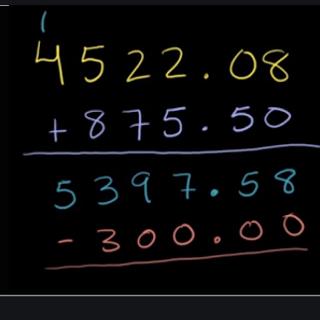 1
4522.08
+875.50
5397.58
-300.00